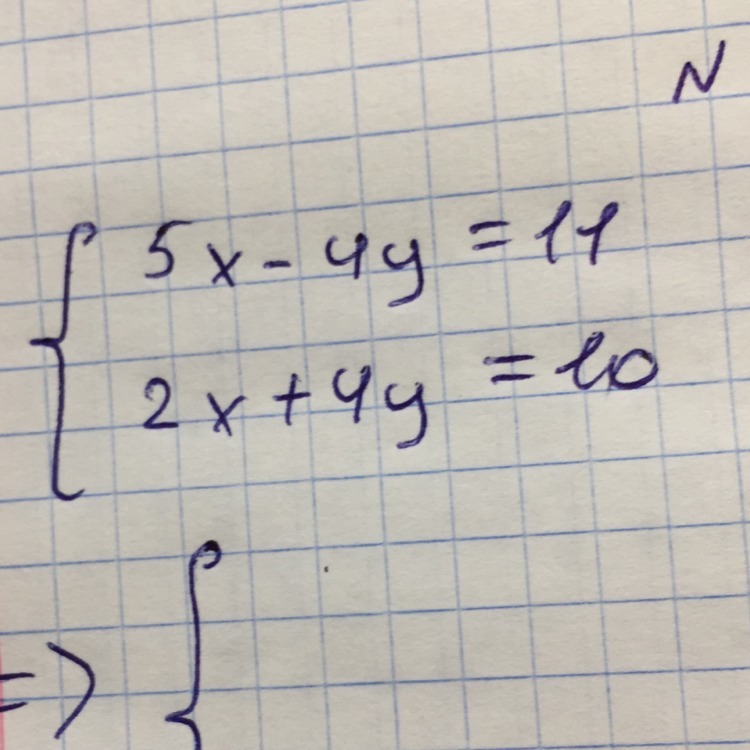 N
5x - 4y = 11
2x + 4y = 10
=> {